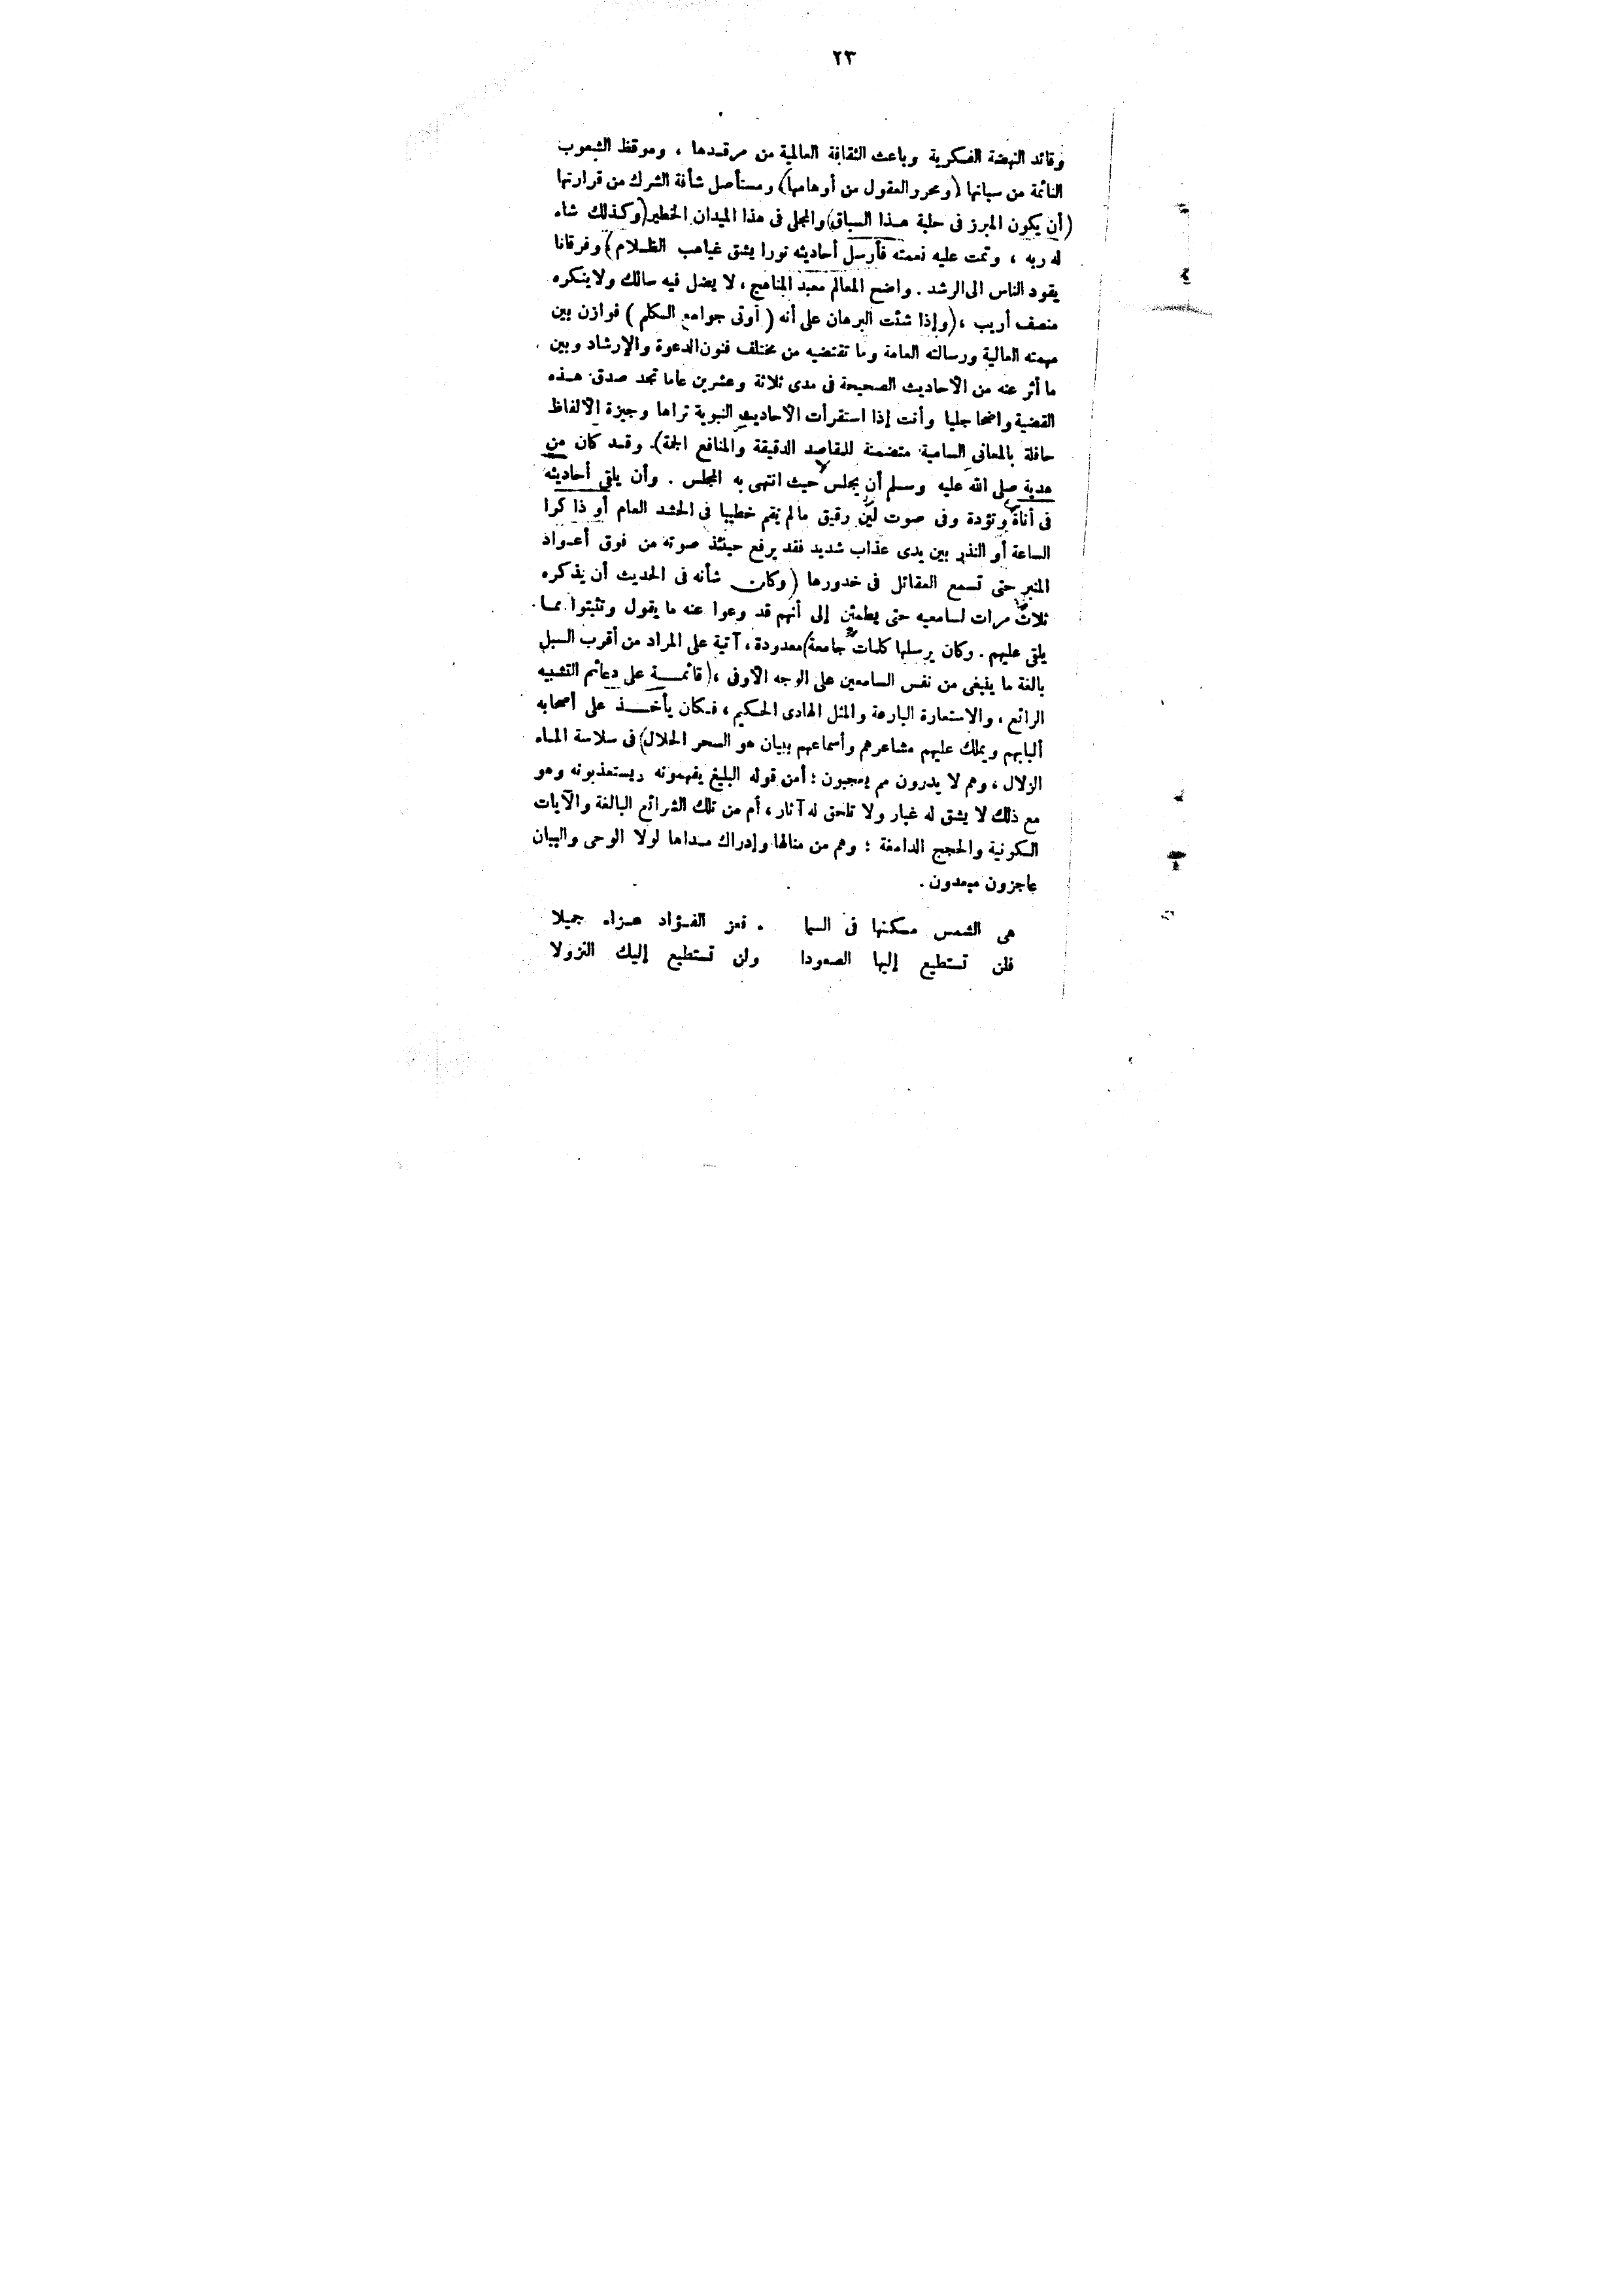 ٢٣
وقائد النهضة الفكرية وباعث الثقافة العالمية من مرقدها ، وموقظ الشعوب
النائمة من سباتها (ومحرر العقول من أوهامها) ومستأصل شأفة الشرك من قرارتها
(أن يكون المبرز فى حلبة هذا السباق) والمجلى فى هذا الميدان الخطير (وكذلك شاء
له ربه ، وتمت عليه نعمته فأرسل أحاديثه نورا يشق غياهب الظلام) وفرقانا
يقود الناس الى الرشد . واضح المعالم معبد المناهج ، لا يضل فيه سالك ولا ينكره
منصف أريب ، (وإذا شئت البرهان على أنه ( أوتى جوامع الكلم ) فوازن بين
مهمته العالية ورسالته العامة وما تقتضيه من مختلف فنون الدعوة والإرشاد وبين
ما أثر عنه من الأحاديث الصحيحة فى مدى ثلاثة وعشرين عاما تجد صدق هذه
القضية واضحا جليا وأنت إذا استقرأت الأحاديث النبوية تراها وجيزة الألفاظ
حافلة بالمعانى السامية متضمنة للمقاصد الدقيقة والمنافع الجمة). وقد كان من
هدية صلى الله عليه وسلم أن يجلس حيث انتهى به المجلس . وأن يلقى أحاديثه
فى أناة وتؤدة وفى صوت لين رقيق مالم يقم خطيبا فى الحشد العام أو ذاكرا
الساعة أو النذر بين يدى عذاب شديد فقد يرفع حينئذ صوته من فوق أعواد
المنبر حتى تسمع العقائل فى خدورها (وكان شأنه فى الحديث أن يذكره
ثلاث مرات لسامعيه حتى يطمئن إلى أنهم قد وعوا عنه ما يقول وتثبتوا مما
يلقى عليهم . وكان يرسلها كلمات جامعة) معدودة ، آتية على المراد من أقرب السبل
بالغة ما ينبغى من نفس السامعين على الوجه الأوفى ، (قائمة على دعائم التشبيه
الرائع ، والاستعارة البارعة والمثل الهادى الحكيم ، فكان يأخذ على أصحابه
ألبابهم ويملك عليهم مشاعرهم وأسماعهم ببيان هو السحر الحلال) فى سلاسة الماء
الزلال ، وهم لا يدرون مم يعجبون ؛ أمن قوله البليغ يفهمونه ويستعذبونه وهو
مع ذلك لا يشق له غبار ولا تلحق له آثار ، أم من تلك الشرائع البالغة والآيات
الكونية والحجج الدامغة ؛ وهم من منالها وإدراك مداها لولا الوحى والبيان
عاجزون مبعدون .
هى الشمس مسكنها فى السما . فعز الفؤاد عزاء جميلا
فلن تستطيع إليها الصعودا ولن تستطيع إليك النزولا